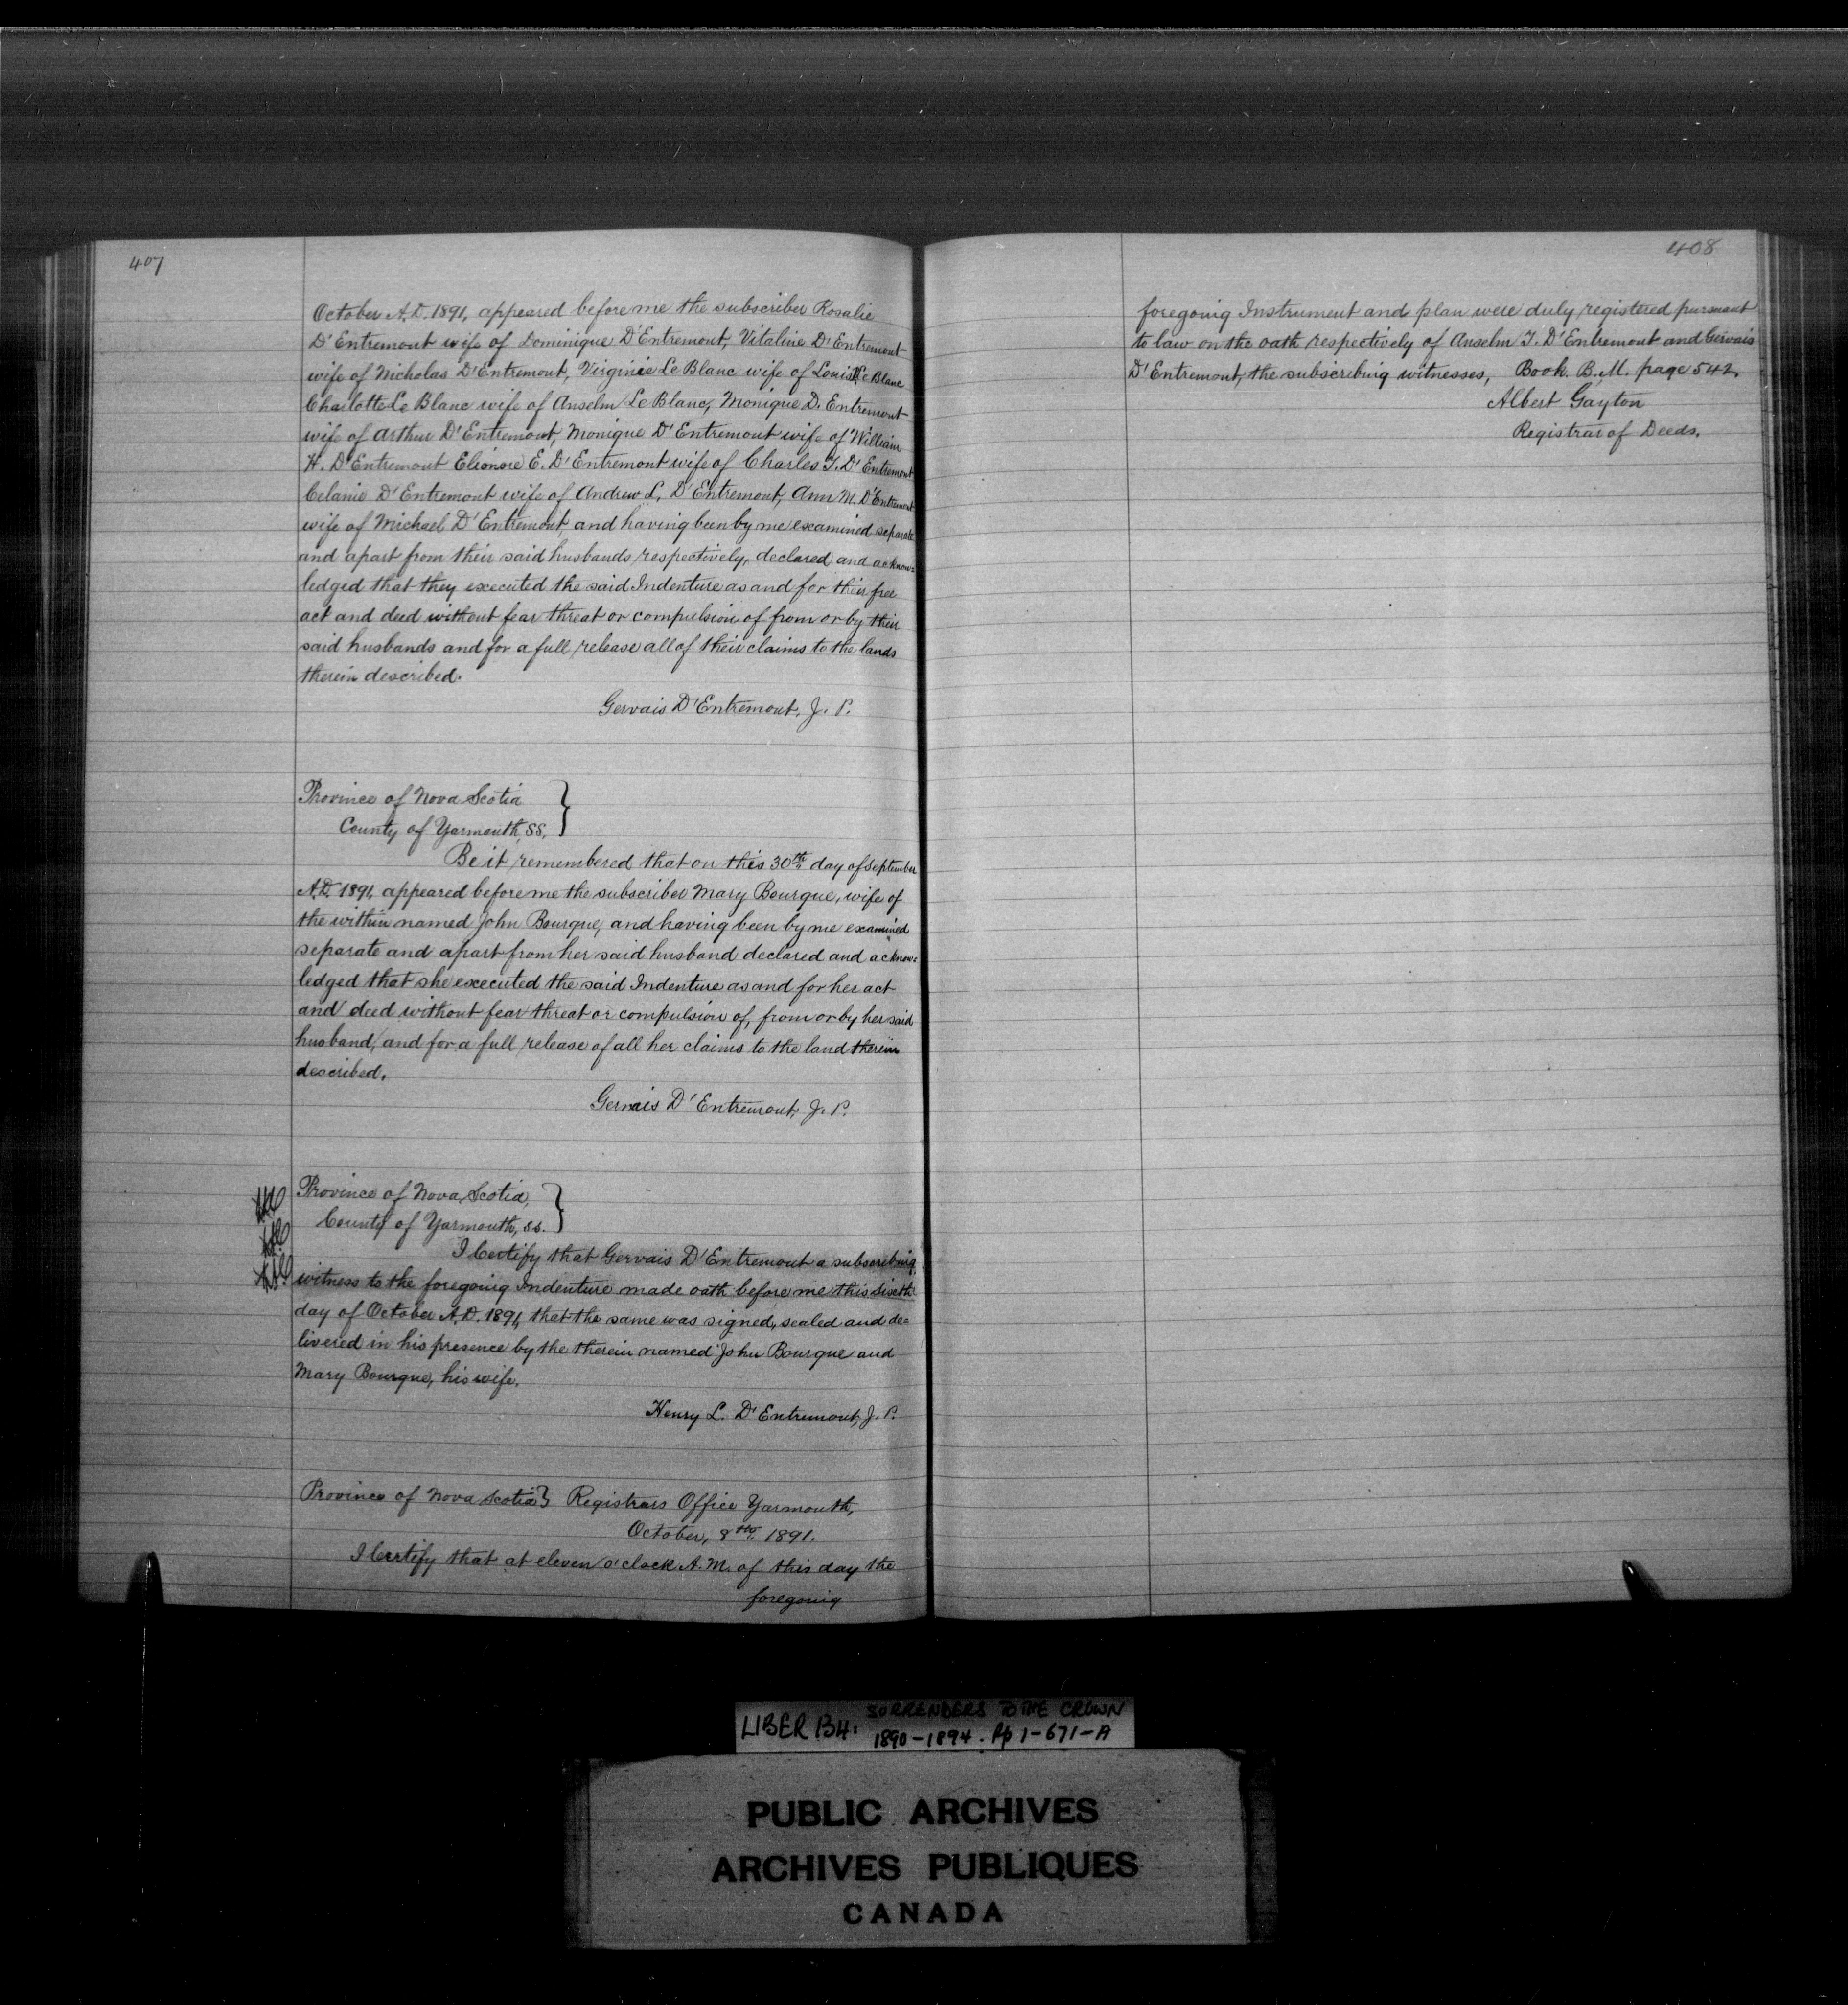 407
October A.D. 1891, appeared before me the subscriber Rosalie
D'Entremont wife of Dominique D'Entremont, Vitaline D'Entremont
wife of Nicholas D'Entremont, Virginie Le Blanc wife of Louis Le Blanc
Charlotte Le Blanc wife of Anselm Le Blanc, Monique D. Entremont
wife of Arthur D'Entremont, Monique D'Entremont wife of William
H. D'Entremont Elionore E. D'Entremont wife of Charles T. D'Entremont
Celanie D'Entremont wife of Andrew L. D'Entremont, Ann M. D'Entremont
wife of Michael D'Entremont, and having been by me examined separate
and apart from their said husbands respectively, declared and acknow=
ledged that they executed the said Indenture as and for their free
act and deed without fear threat or compulsion of from or by their
said husbands and for a full release all of their claims to the lands
therein described.
Gervais D'Entremont, J. P.
Province of Nova Scotia }
County of Yarmouth, SS.
Be it remembered that on this 30th day of September
A.D. 1891, appeared before me the subscriber Mary Bourque, wife of
the within named John Bourque, and having been by me examined
separate and apart from her said husband declared and acknow=
ledged that she executed the said Indenture as and for her act
and deed without fear threat or compulsion of, from or by her said
husband, and for a full release of all her claims to the land therein
described.
Gervais D'Entremont, J. P.
Province of Nova Scotia, }
County of Yarmouth, ss.
I Certify that Gervais D'Entremont a subscribing
witness to the foregoing Indenture made oath before me this sixth
day of October A.D. 1891, that the same was signed, sealed and de=
livered in his presence by the therein named John Bourque and
Mary Bourque, his wife.
Henry L. D'Entremont, J. P.
Province of Nova Scotia } Registrars Office Yarmouth,
October, 8th 1891.
I Certify that at eleven o'clock A.M. of this day the
foregoing
408
foregoing Instrument and plan were duly registered pursuant
to law on the oath respectively of Anselm T. D'Entremont and Gervais
D'Entremont, the subscribing witnesses, Book. B.M. page 542.
Albert Gayton
Registrar of Deeds.
LIBER 134: SURRENDERS TO THE CROWN
1890-1894. Pp 1-671-A
PUBLIC ARCHIVES
ARCHIVES PUBLIQUES
CANADA